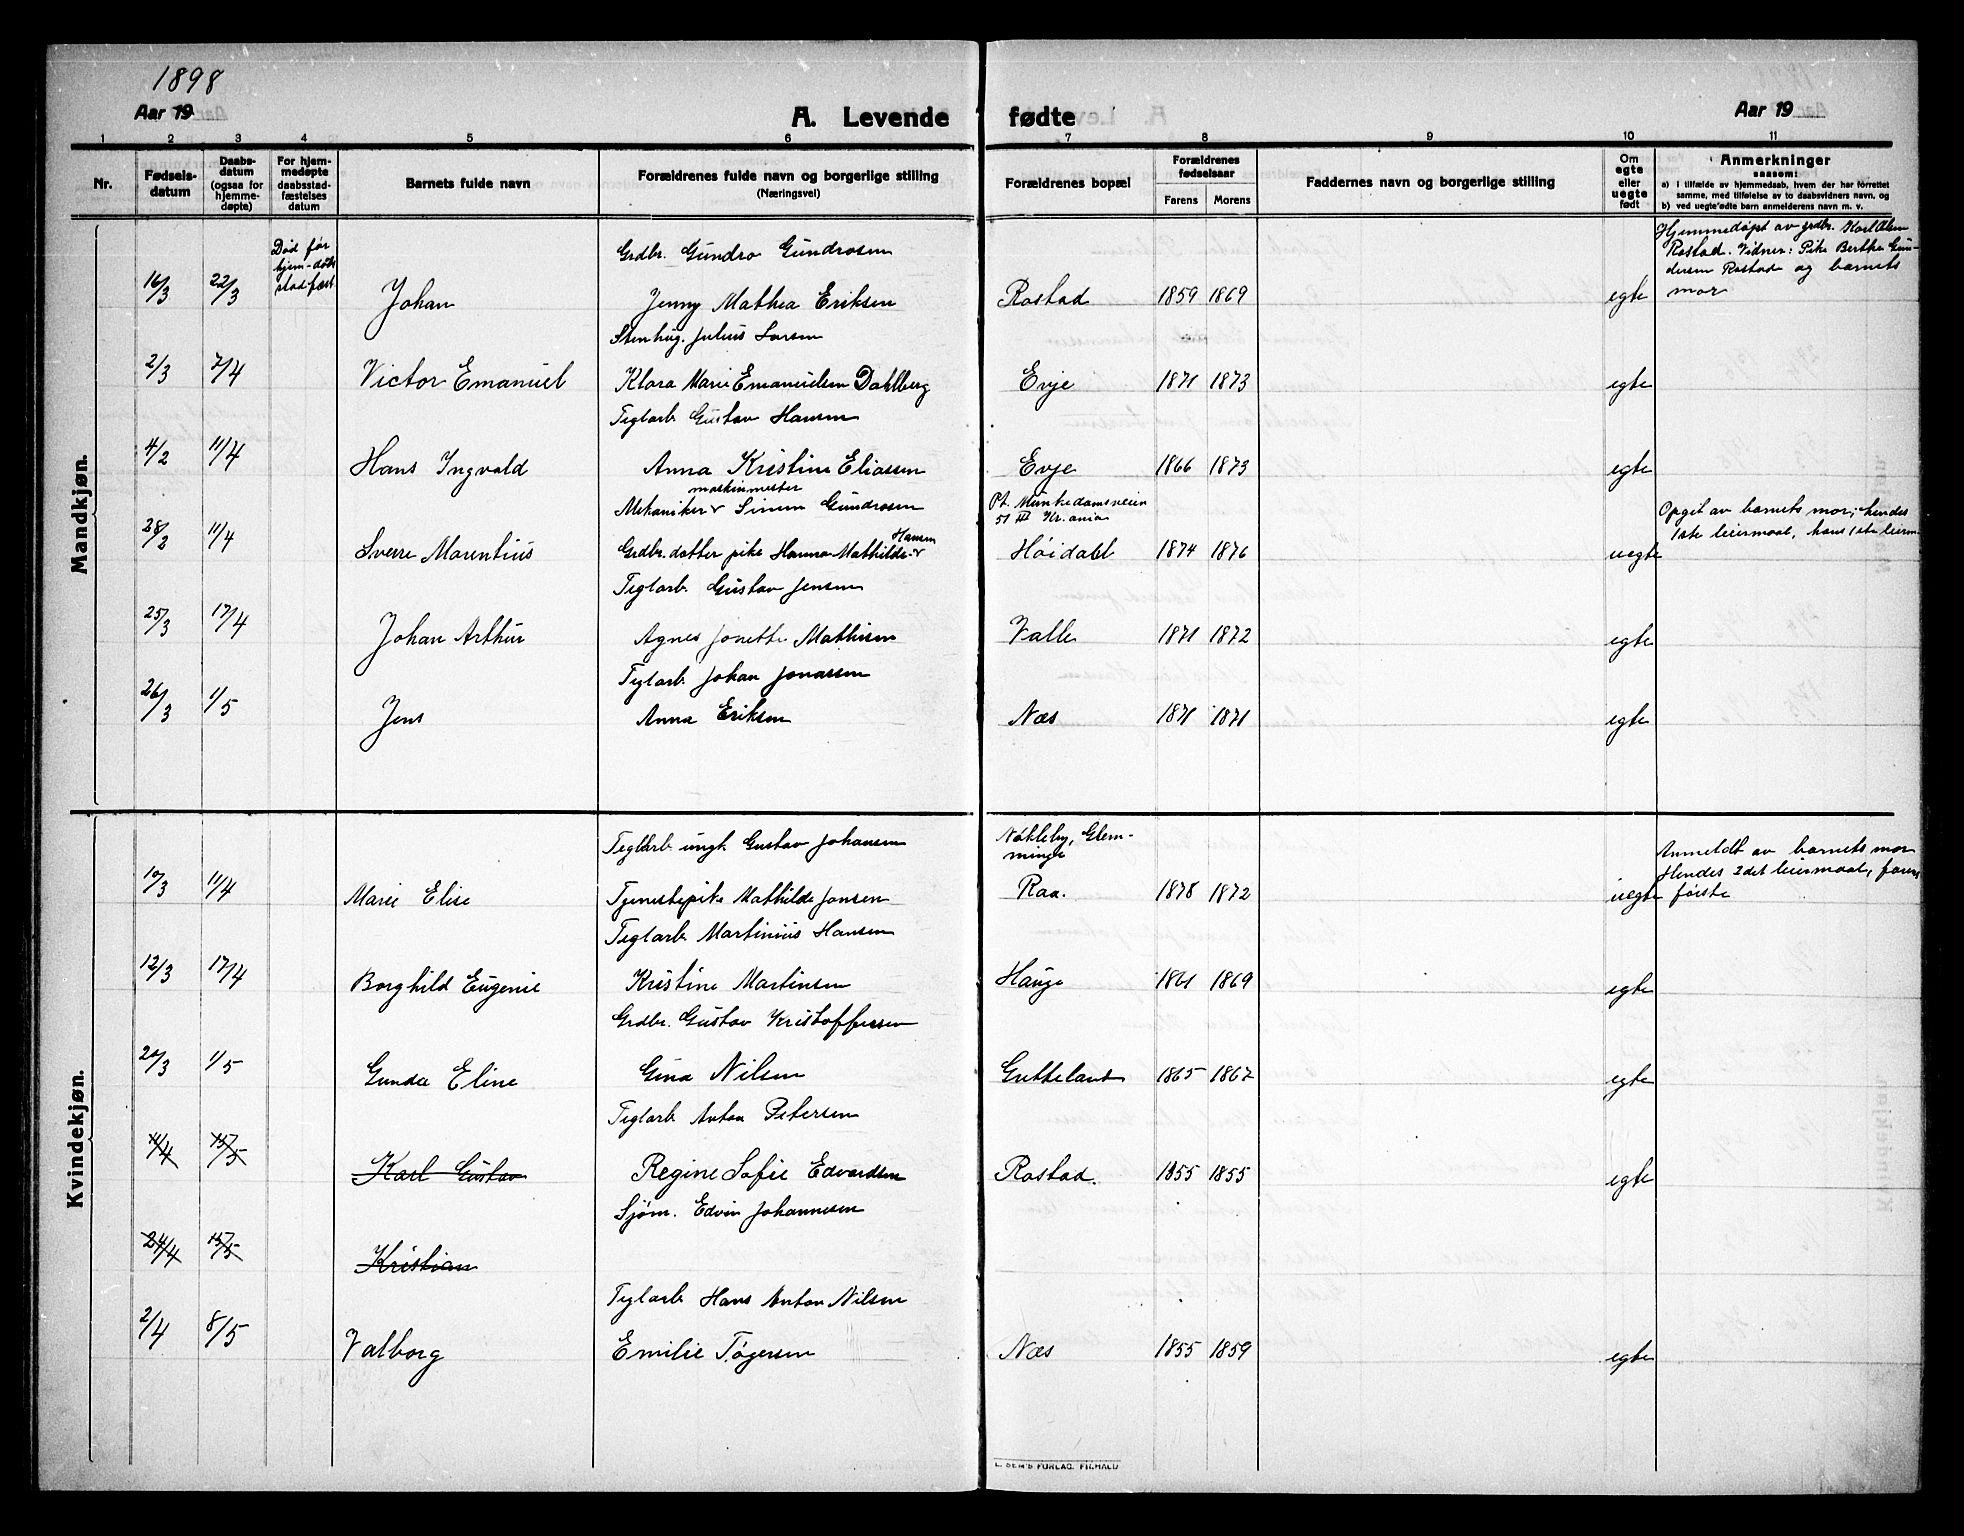 1898
Aar 19
A. Levende fødte
Aar 19
1 2 3 4 5 6 7 8 9 10 11
Nr.
Fødsels-
datum
Daabs-
datum
(ogsaa for
hjemme-
døpte)
For hjem-
medøpte
daabsstad-
fæstelses
datum
Barnets fulde navn
Forældrenes fulde navn og borgerlige stilling
(Næringsvei)
Forældrenes bopæl
Forældrenes
fødselsaar
Farens Morens
Faddernes navn og borgerlige stilling
Om
egte
eller
uegte
født
Anmerkninger
saasom:
a) i tilfælde av hjemmedaab, hvem der har forrettet
samme, med tilføielse av to daabsvidners navn, og
b) ved uegte fødte barn anmelderens navn m. v.
Mandkjøn.
Død før
hjem-døbt
stadfæst
Grdbr. Gundro Gundrosen
Hjemmedøpt av grdbr. Karl Olsen
Rostad. Vidner: Pike Berthe Gun-
dersen Rostad og barnets
mor
16/3 22/3 Johan Jenny Mathea Eriksen Rostad 1859 1869 egte
Stenhug. Julius Larsen
2/3 7/4 Victor Emanuel Klara Marie Emanuelsen Dahlberg Evje 1871 1873 egte
Teglarb. Gustav Hansen
4/2 11/4 Hans Ingvald Anna Kristine Eliassen Evje 1866 1873 egte
maskinmester
Mekaniker Simen Gundrosen Pt. Munkedamsveien
51 III Kr.ania
Opgit av barnets mor; hendes
1ste leiermaal, hans 1ste leierm.
Hansen
28/2 11/4 Sverre Marentius Grdbr. datter pike Hanna Mathilde Høidahl 1874 1876 uegte
Teglarb. Gustav Jensen
25/3 17/4 Johan Arthur Agnes Jonette Mathisen Valle 1871 1872 egte
Teglarb. Johan Jonassen
26/3 1/5 Jens Anna Eriksen Næs 1871 1871 egte
Kvindekjøn.
Teglarb. ungk. Gustav Johansen Nøkleby, Glem-
minge
Anmeldt av barnets mor
Hendes 2det leiermaal, farens
første
10/3 11/4 Marie Elise Tjenestepike Mathilde Jansen Raa. 1878 1872 uegte
Teglarb. Martinius Hansen
12/3 17/4 Borghild Eugenie Kristine Martinsen Hauge 1861 1869 egte
Grdbr. Gustav Kristoffersen
20/3 1/5 Gunda Eline Gina Nilsen Gutteland 1865 1867 egte
Teglarb. Anton Petersen
11/4 15/5 Karl Gustav Regine Sofie Edvardsen Rostad. 1855 1855 egte
Sjøm. Edvin Johannesen
24/4 15/5 Kristian
Teglarb. Hans Anton Nilsen
2/4 8/5 Valborg Emilie Tøgersen Næs 1855 1859 egte